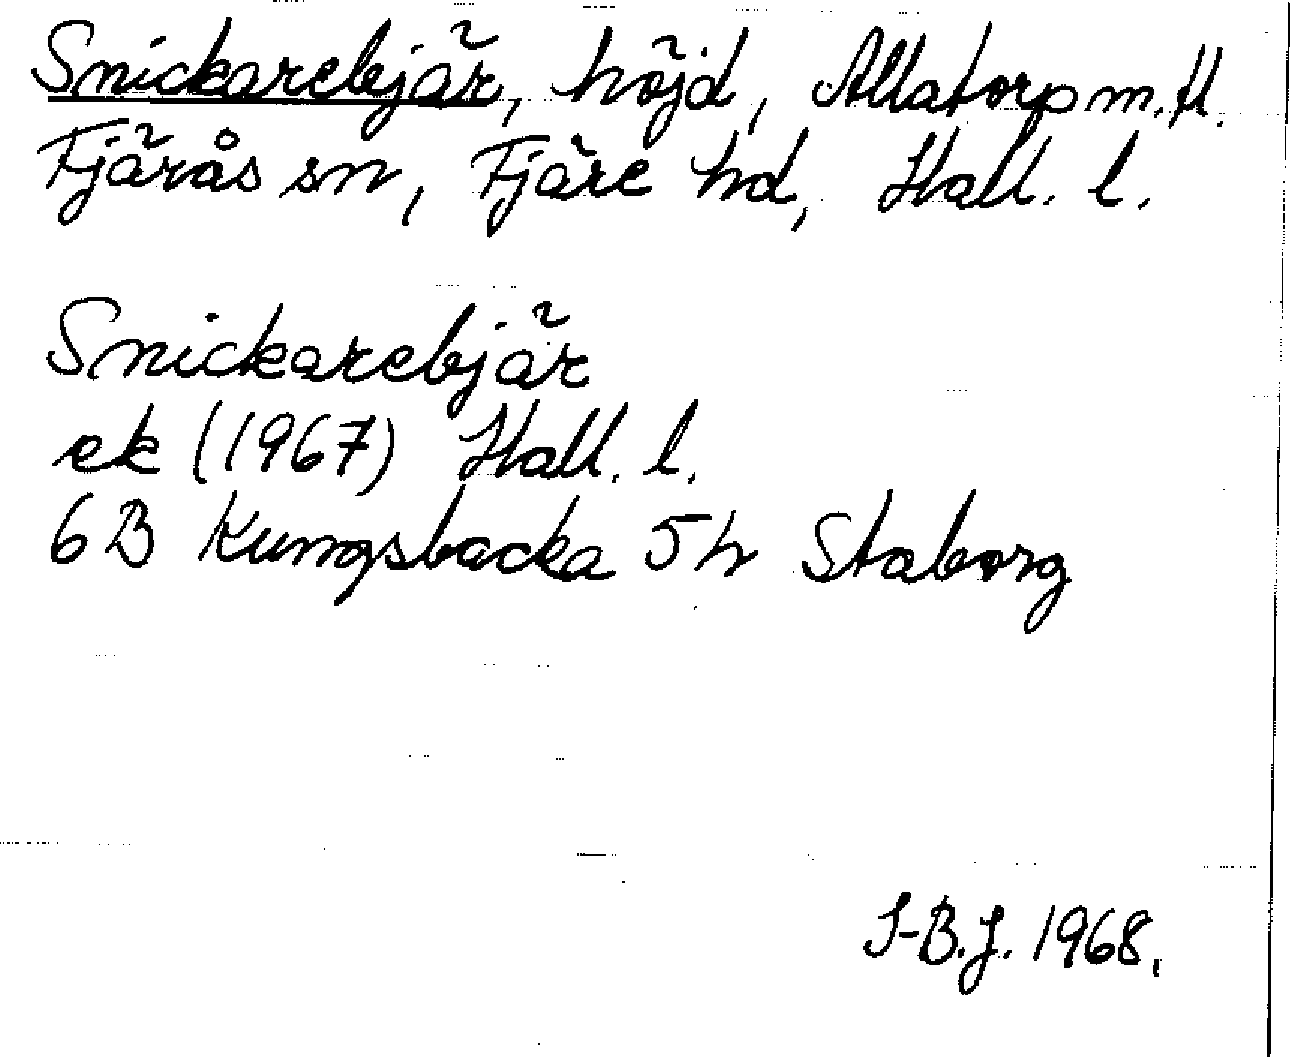 Snickarebjär, höjd, Allatorp m.fl.
Fjärås sn, Fjäre hd, Hall. l.
Snickarebjär
ek (1967) Hall. l.
6B Kungsbacka 5h Staborg
I-B.J. 1968.